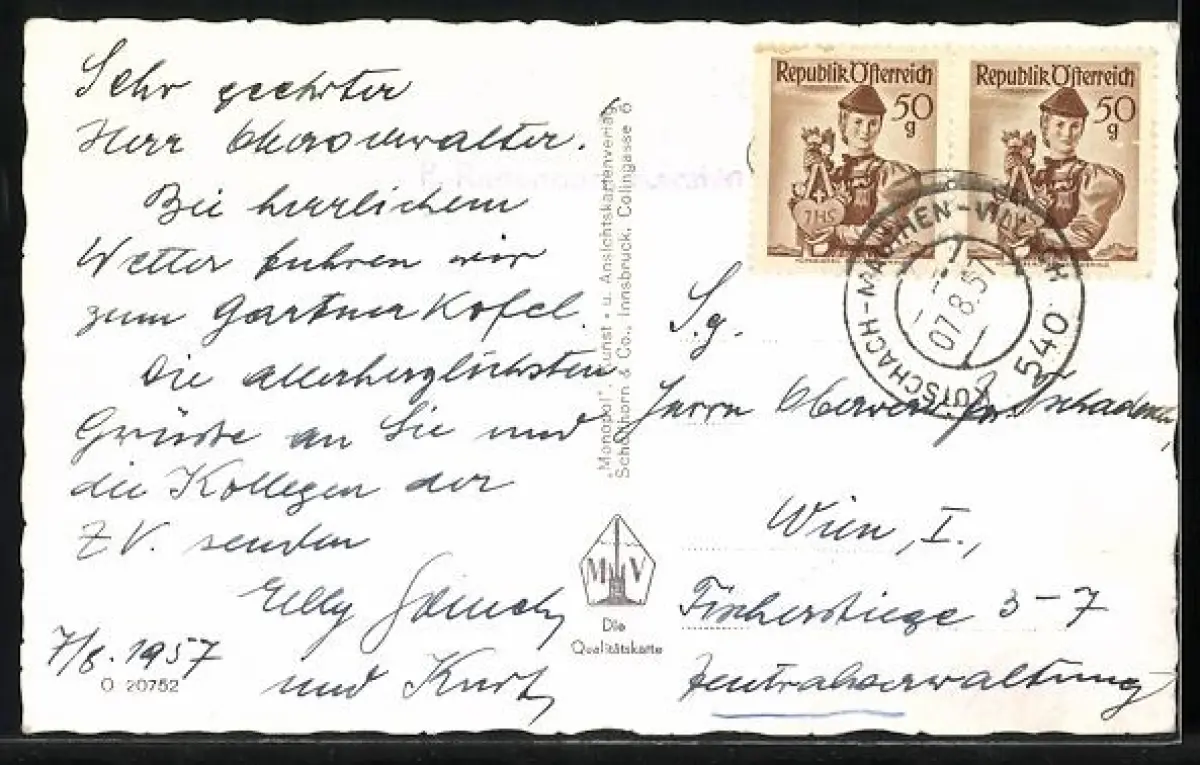 Sehr geehrter
Herr Oberverwalter.
Bei herrlichem
Wetter fuhren wir
zum Gartnerkofel.
Die allerherzlichsten
Grüsse an Sie und
die Kollegen der
Z.V. senden
Elly
und Kurt
7/8. 1957
O 20752
"Monopol", Kunst- u. Ansichtskartenverlag
Schöllhorn & Co., Innsbruck, Colingasse 6
MV
Die
Qualitätskarte
Republik Österreich
50
g
JHS
Republik Österreich
50
g
KÖTSCHACH-MAUTHEN
07.8.57
540
S.g.
Herrn
Wien, I.,
Fischerstiege 3-7
Zentralverwaltung